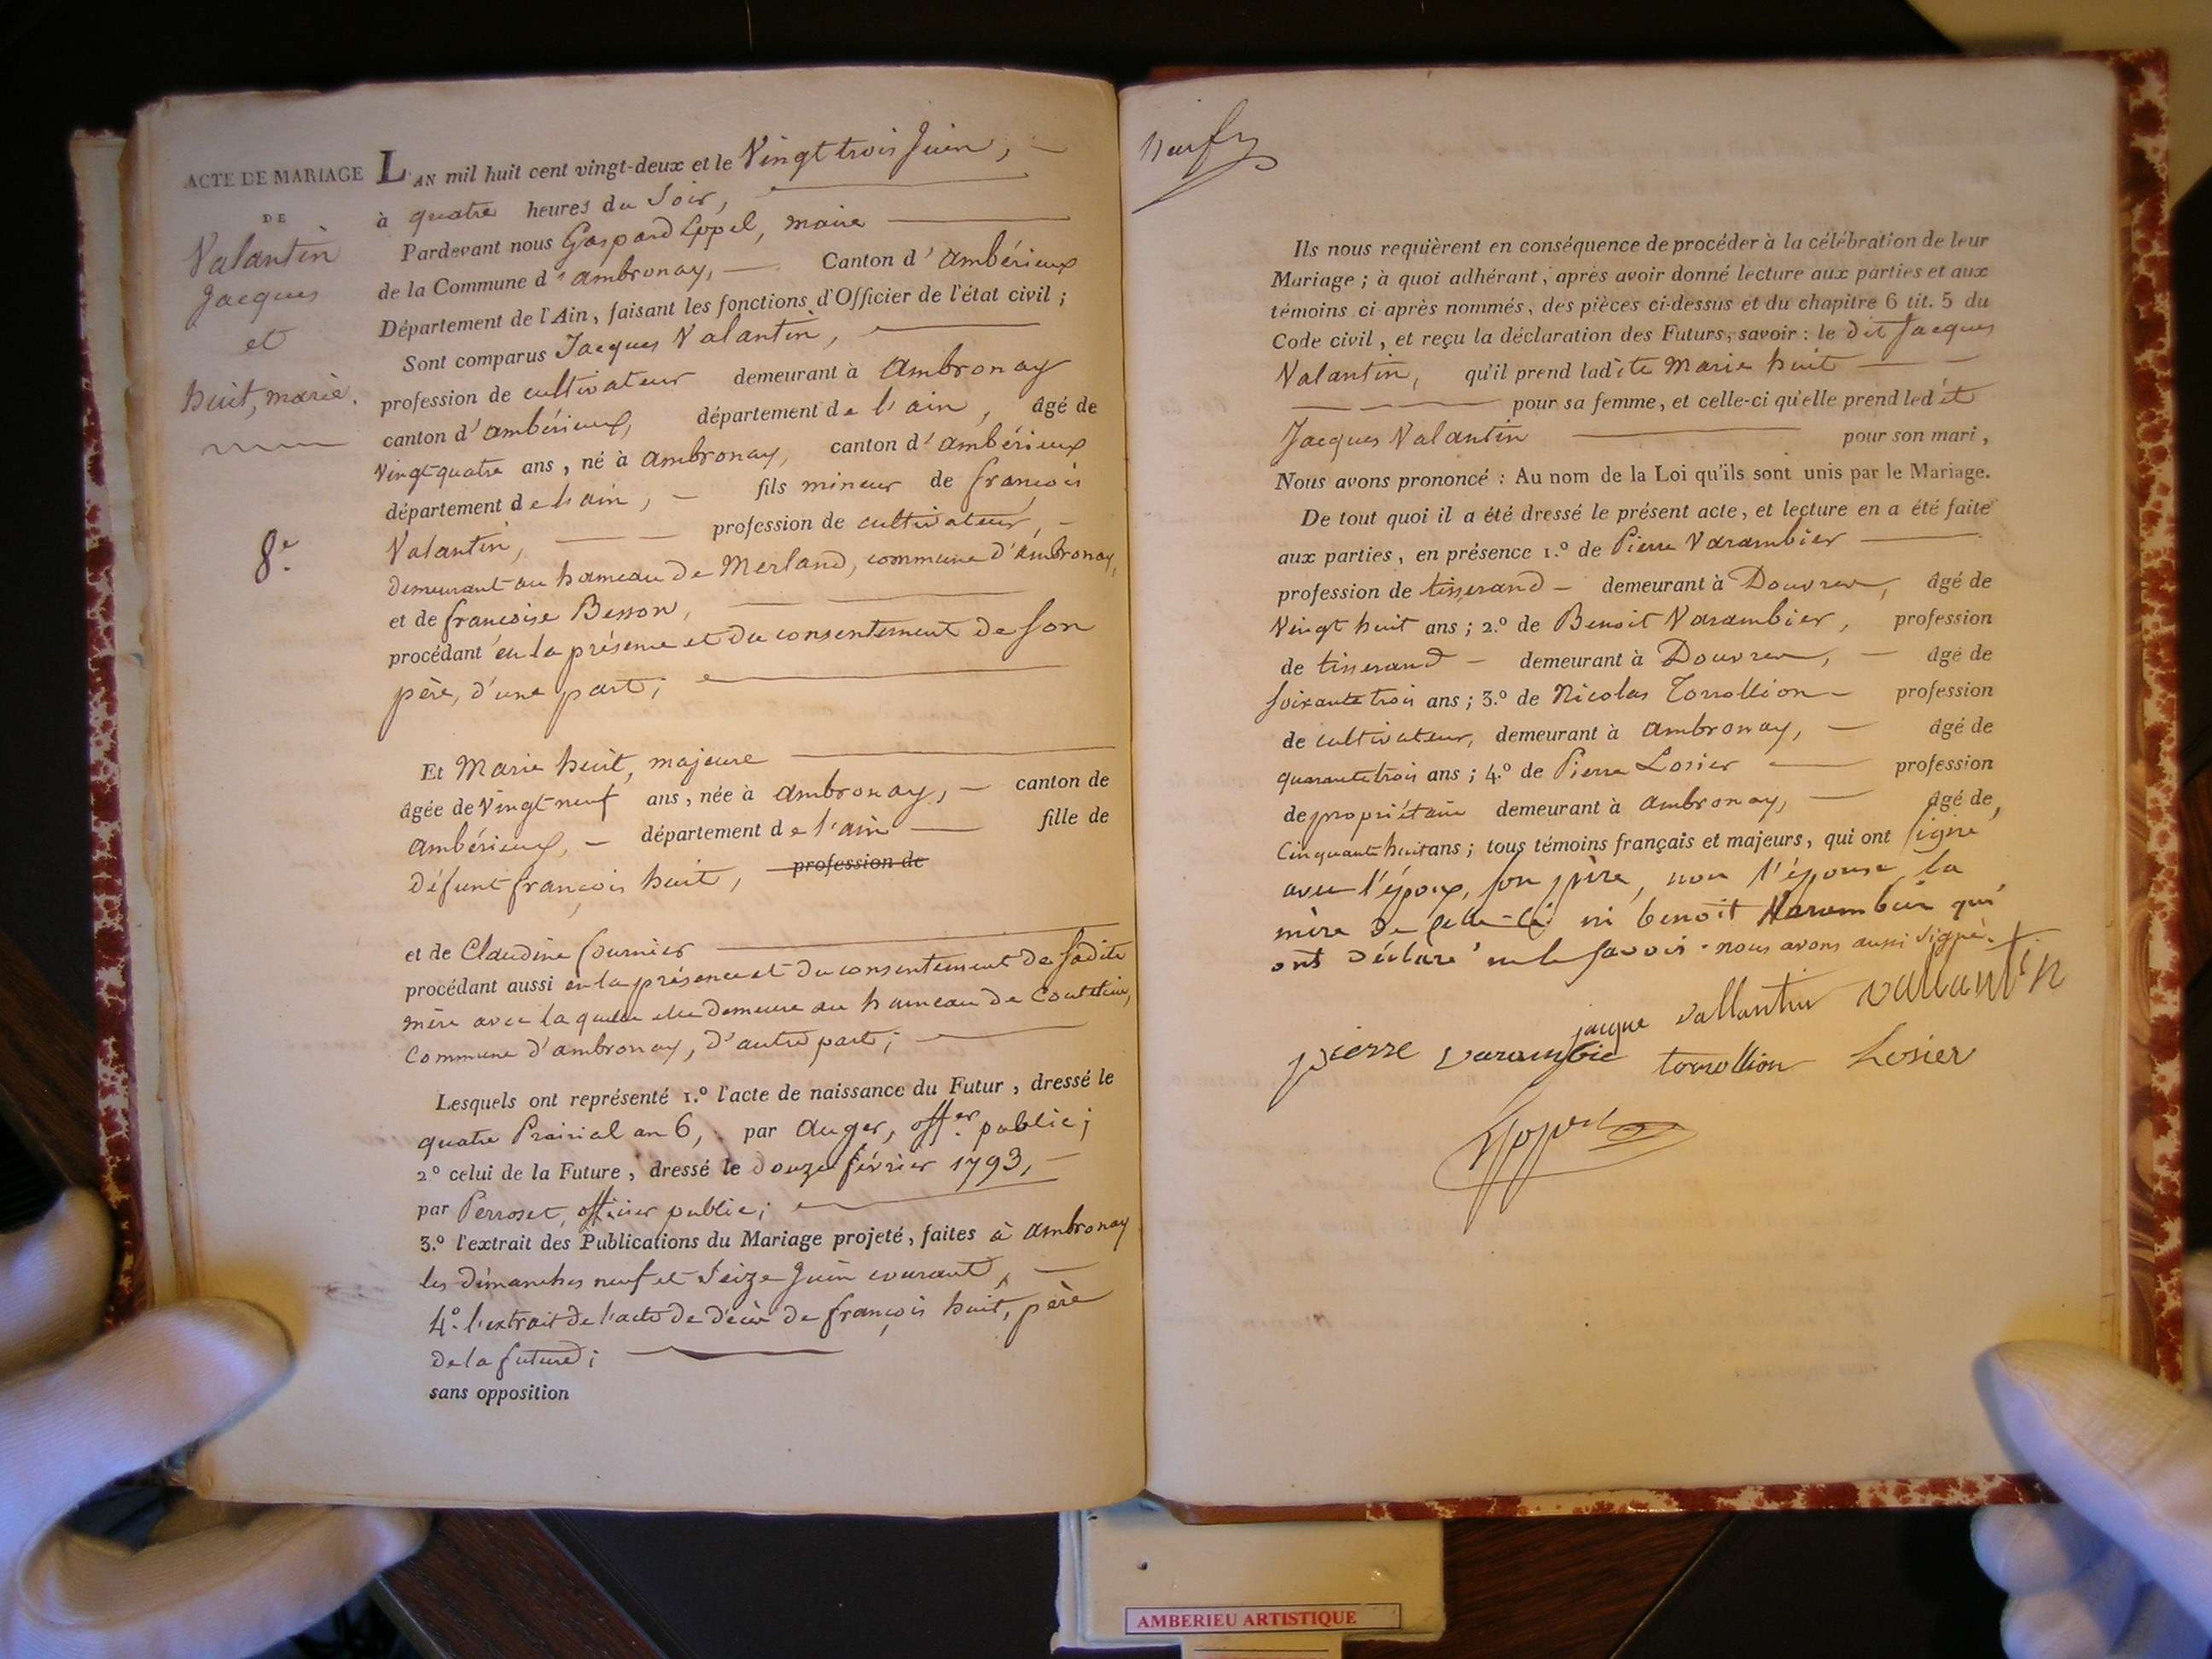 ACTE DE MARIAGE
DE
Valantin
Jacques
et
huit, marie.
8.e
L'AN mil huit cent vingt-deux et le Vingt trois Juin,
à quatre heures du Soir,
Pardevant nous Gaspard Eppel, maire
de la Commune d'ambronay, Canton d'Ambérieux
Département de l'Ain, faisant les fonctions d'Officier de l'état civil ;
Sont comparus Jacques Valantin,
profession de cultivateur demeurant à Ambronay
canton d'ambérieux, département de l'ain, âgé de
Vingt quatre ans, né à Ambronay, canton d'ambérieux
département de l'ain, fils mineur de françois
Valantin, profession de cultivateur,
demeurant au hameau de Merland, commune d'Ambronay,
et de francoise Besson,
procédant en la présence et du consentement de Son
père, d'une part;
Et Marie huit, majeure
âgée de Vingt neuf ans, née à ambronay, canton de
ambérieux, département de l'ain fille de
défunt françois huit, profession de
et de Claudine fournier
procédant aussi en la présence et du consentement de Sadite
mère avec laquelle elle demeure au hameau de
Commune d'ambronay, d'autre part;
Lesquels ont représenté 1.º l'acte de naissance du Futur, dressé le
quatre Prairial an 6, par Auger, off.er public;
2º celui de la Future, dressé le douze février 1793,
par Perroset, officier public;
3.º l'extrait des Publications du Mariage projeté, faites à ambronay
les dimanches neuf et Seize Juin courant,
4º. l'extrait de l'acte de décès de françois huit, père
de la future;
sans opposition
Ils nous requièrent en conséquence de procéder à la célébration de leur
Mariage ; à quoi adhérant, après avoir donné lecture aux parties et aux
témoins ci-après nommés, des pièces ci-dessus et du chapitre 6 tit. 5 du
Code civil, et reçu la déclaration des Futurs, savoir : le dit Jacques
Valantin, qu'il prend ladite Marie huit
pour sa femme, et celle-ci qu'elle prend ledit
Jacques Valantin pour son mari,
Nous avons prononcé : Au nom de la Loi qu'ils sont unis par le Mariage.
De tout quoi il a été dressé le présent acte, et lecture en a été faite
aux parties, en présence 1.º de Pierre Varambier
profession de tisserand demeurant à Douvres, âgé de
Vingt huit ans ; 2.º de Benoit Varambier, profession
de tisserand demeurant à Douvres, âgé de
Soixante trois ans ; 3.º de Nicolas Torrollion profession
de cultivateur, demeurant à ambronay, âgé de
quarante trois ans ; 4.º de Pierre Losier profession
de propriétaire demeurant à ambronay, âgé de
Cinquante huit ans ; tous témoins français et majeurs, qui ont signé,
avec l'époux, son père, non l'épouse la
mère de celle-ci ni benoit Varambier qui
ont déclaré ne le Savoir. nous avons aussi signé.
jacque vallantin vallantin
pierre varambie torrollion Losier
Eppel
AMBERIEU ARTISTIQUE